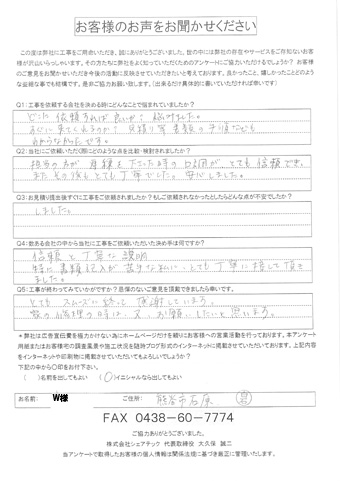 お客様のお声をお聞かせください
この度は弊社に工事をご用命いただき、誠にありがとうございました。世の中には弊社の存在やサービスをご存知ないお客
様が沢山いらっしゃいます。その方たちに弊社をよく知っていただくためのアンケートにご協力いただけるでしょうか？お客様
のご意見をお聞かせいただき今後の活動に反映させていただきたいと考えております。良かったこと、嬉しかったことどのよう
な些細な事でも結構です。是非ご協力お願い致します。（出来るだけ具体的に書いていただければ幸いです）
Q1:工事を依頼する会社を決める時にどんなことで悩まれていましたか？
どこに依頼すれば良いか？悩みました。
すぐに来てくれるのか？見積り等書類の手順なども
わからなかったです。
Q2:当社にご依頼いただく際にどのような点を比較・検討されましたか？
担当の方が
とても信頼でき、
またその後もとても丁寧でした。安心しました。
Q3:お見積り提出後すぐに工事をご依頼されましたか？もしご依頼されなかったとしたらどんな点が不安でしたか？
しました。
Q4:数ある会社の中から当社に工事をご依頼いただいた決め手は何ですか？
信頼と丁寧な説明
特に書類記入が苦手な私に、とても丁寧に接して頂き
ました。
Q5:工事が終わってみていかがですか？忌憚のないご意見を頂戴できましたら幸いです。
とてもスムーズに終って感謝しています。
の修理の時は、又、お願いしたいと思います。
＊弊社は広告宣伝費を極力かけない為にホームページだけを頼りにお客様への営業活動を行っております。本アンケート
用紙またはお客様宅の調査風景や施工状況を随時ブログ形式のインターネットに掲載させていただいております。上記内容
をインターネットや印刷物に掲載させていただいてもよろしいでしょうか？
下記の中から○印をお付け下さい。
（　）名前を出してもよい　（○）イニシャルなら出してもよい
お名前: W様　ご住所: 熊谷市石原
FAX 0438-60-7774
ご協力ありがとうございました。
株式会社シェアテック 代表取締役 大久保 誠二
当アンケートで取得したお客様の個人情報は関係法規に基づき厳正に管理いたします。